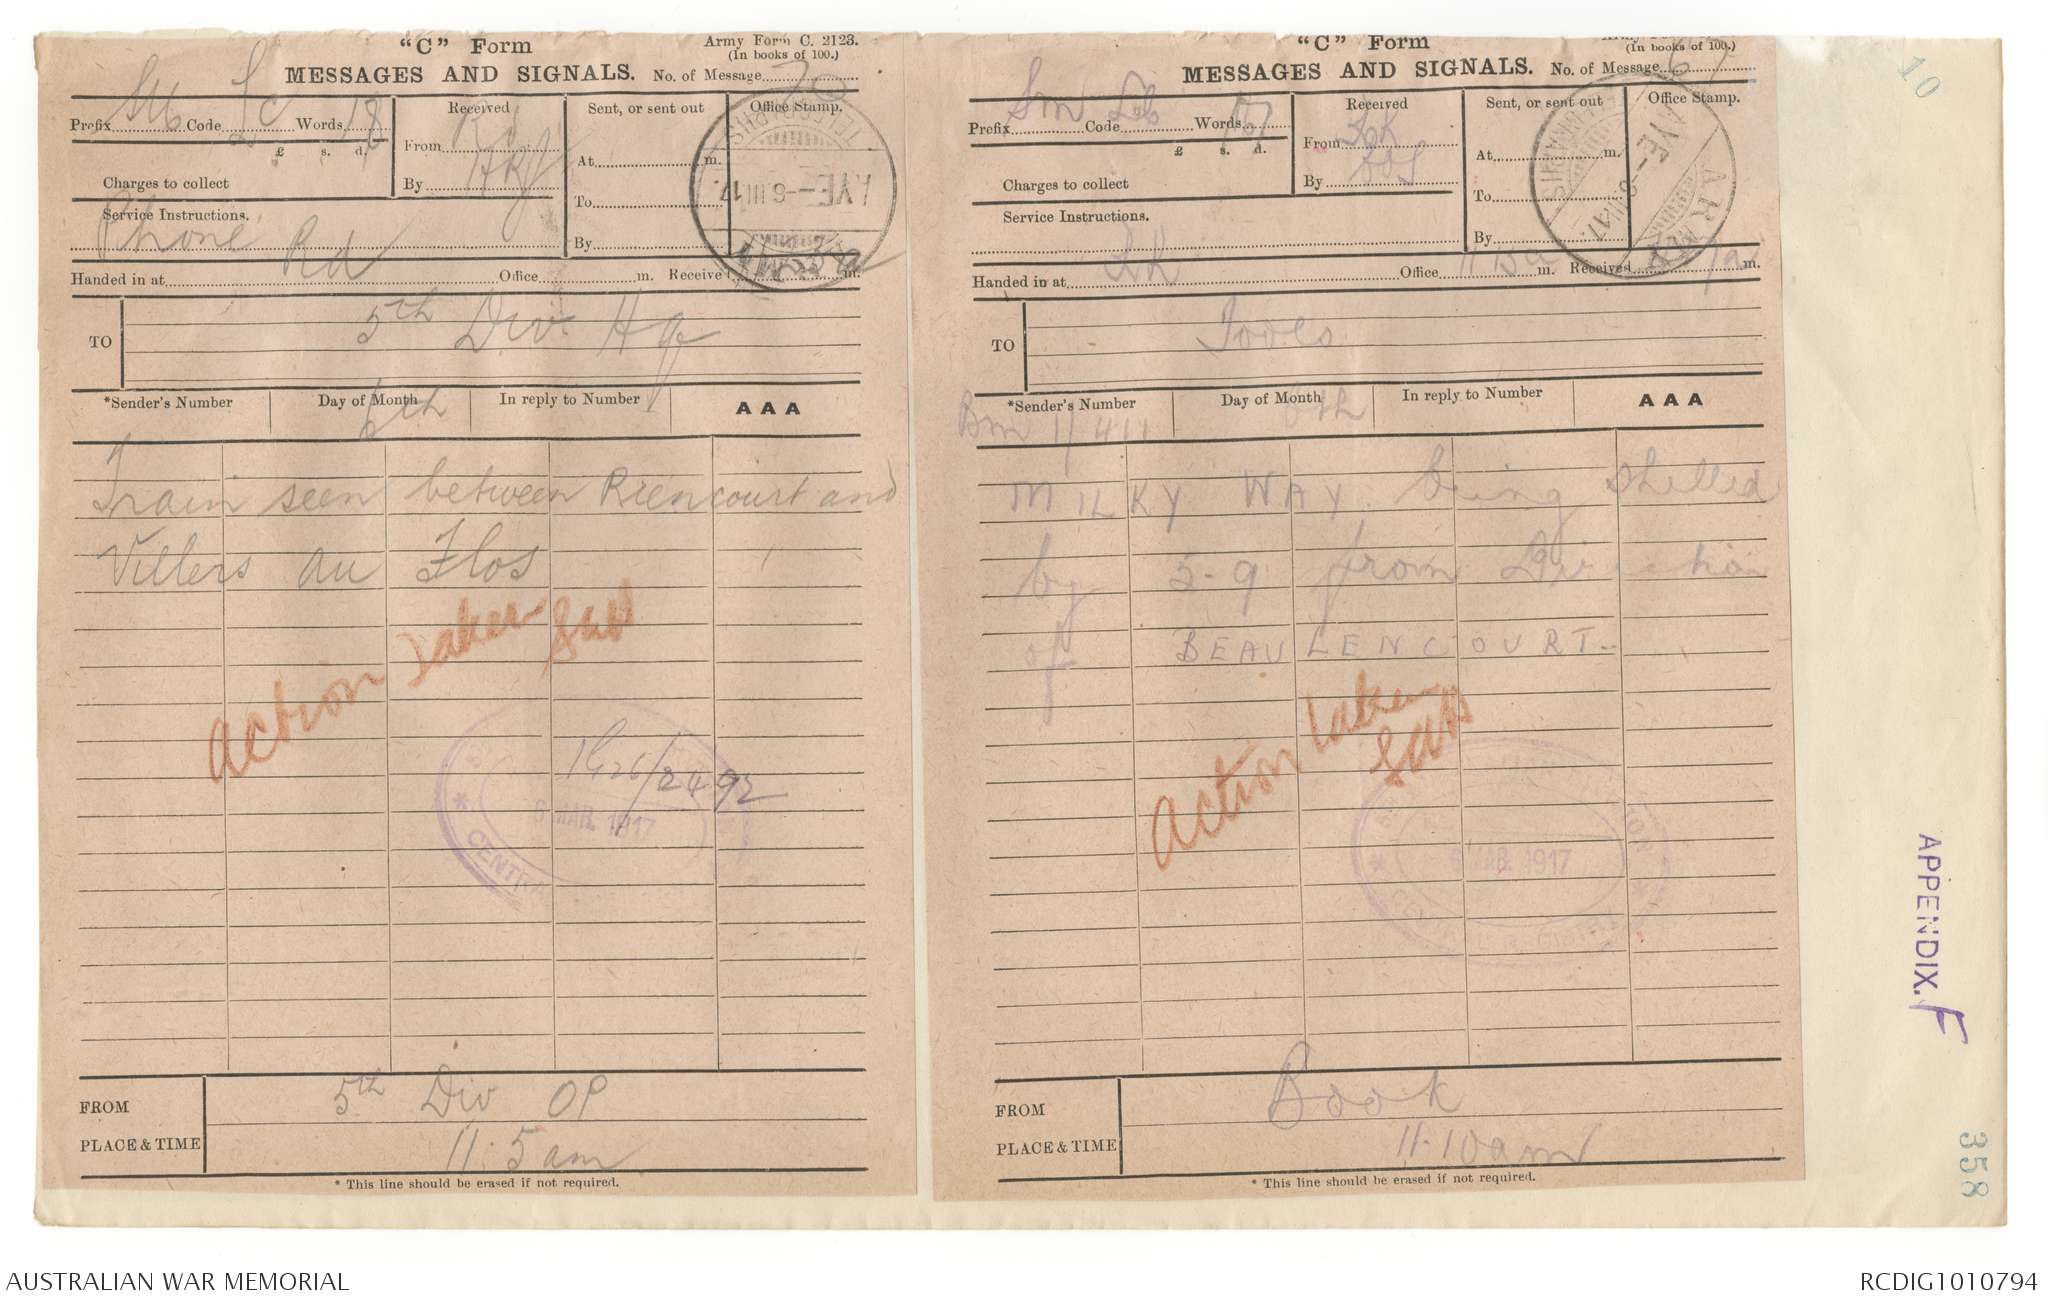 "C" Form
Army Form C. 2123.
(In books of 100.)
MESSAGES AND SIGNALS. No. of Message 70
Prefix Sm Code Words 18
£ s. d.
Charges to collect
Received
From Rd
By
Sent, or sent out
At m.
To
By
Office Stamp.
TELEGRAPHS
AYE - 6 III 17.
ARMY
Service Instructions.
Phone Rd
Handed in at Office m. Received m.
TO
5th Div Hq
*Sender's Number
Day of Month
6th
In reply to Number
AAA
Train seen between Riencourt and
Villers au Flos
Action taken
6 MAR. 1917
CENTRAL
FROM
5th Div OP
PLACE & TIME
11.5 am
* This line should be erased if not required.
"C" Form
(In books of 100.)
MESSAGES AND SIGNALS. No. of Message 67
Prefix Sm Code Words
£ s. d.
Charges to collect
Received
From
By
Sent, or sent out
At m.
To
By
Office Stamp.
ARMY
TELEGRAPHS
AYE - 6 III 17.
Service Instructions.
Handed in at Office m. Received m.
TO
*Sender's Number
Bm 11/411
Day of Month
6th
In reply to Number
AAA
MILKY WAY being shelled
by 5-9 from Direction
of BEAULENCOURT -
Action taken
6 MAR. 1917
FROM
Book
PLACE & TIME
11.10 am
* This line should be erased if not required.
10
APPENDIX. F
358
AUSTRALIAN WAR MEMORIAL
RCDIG1010794